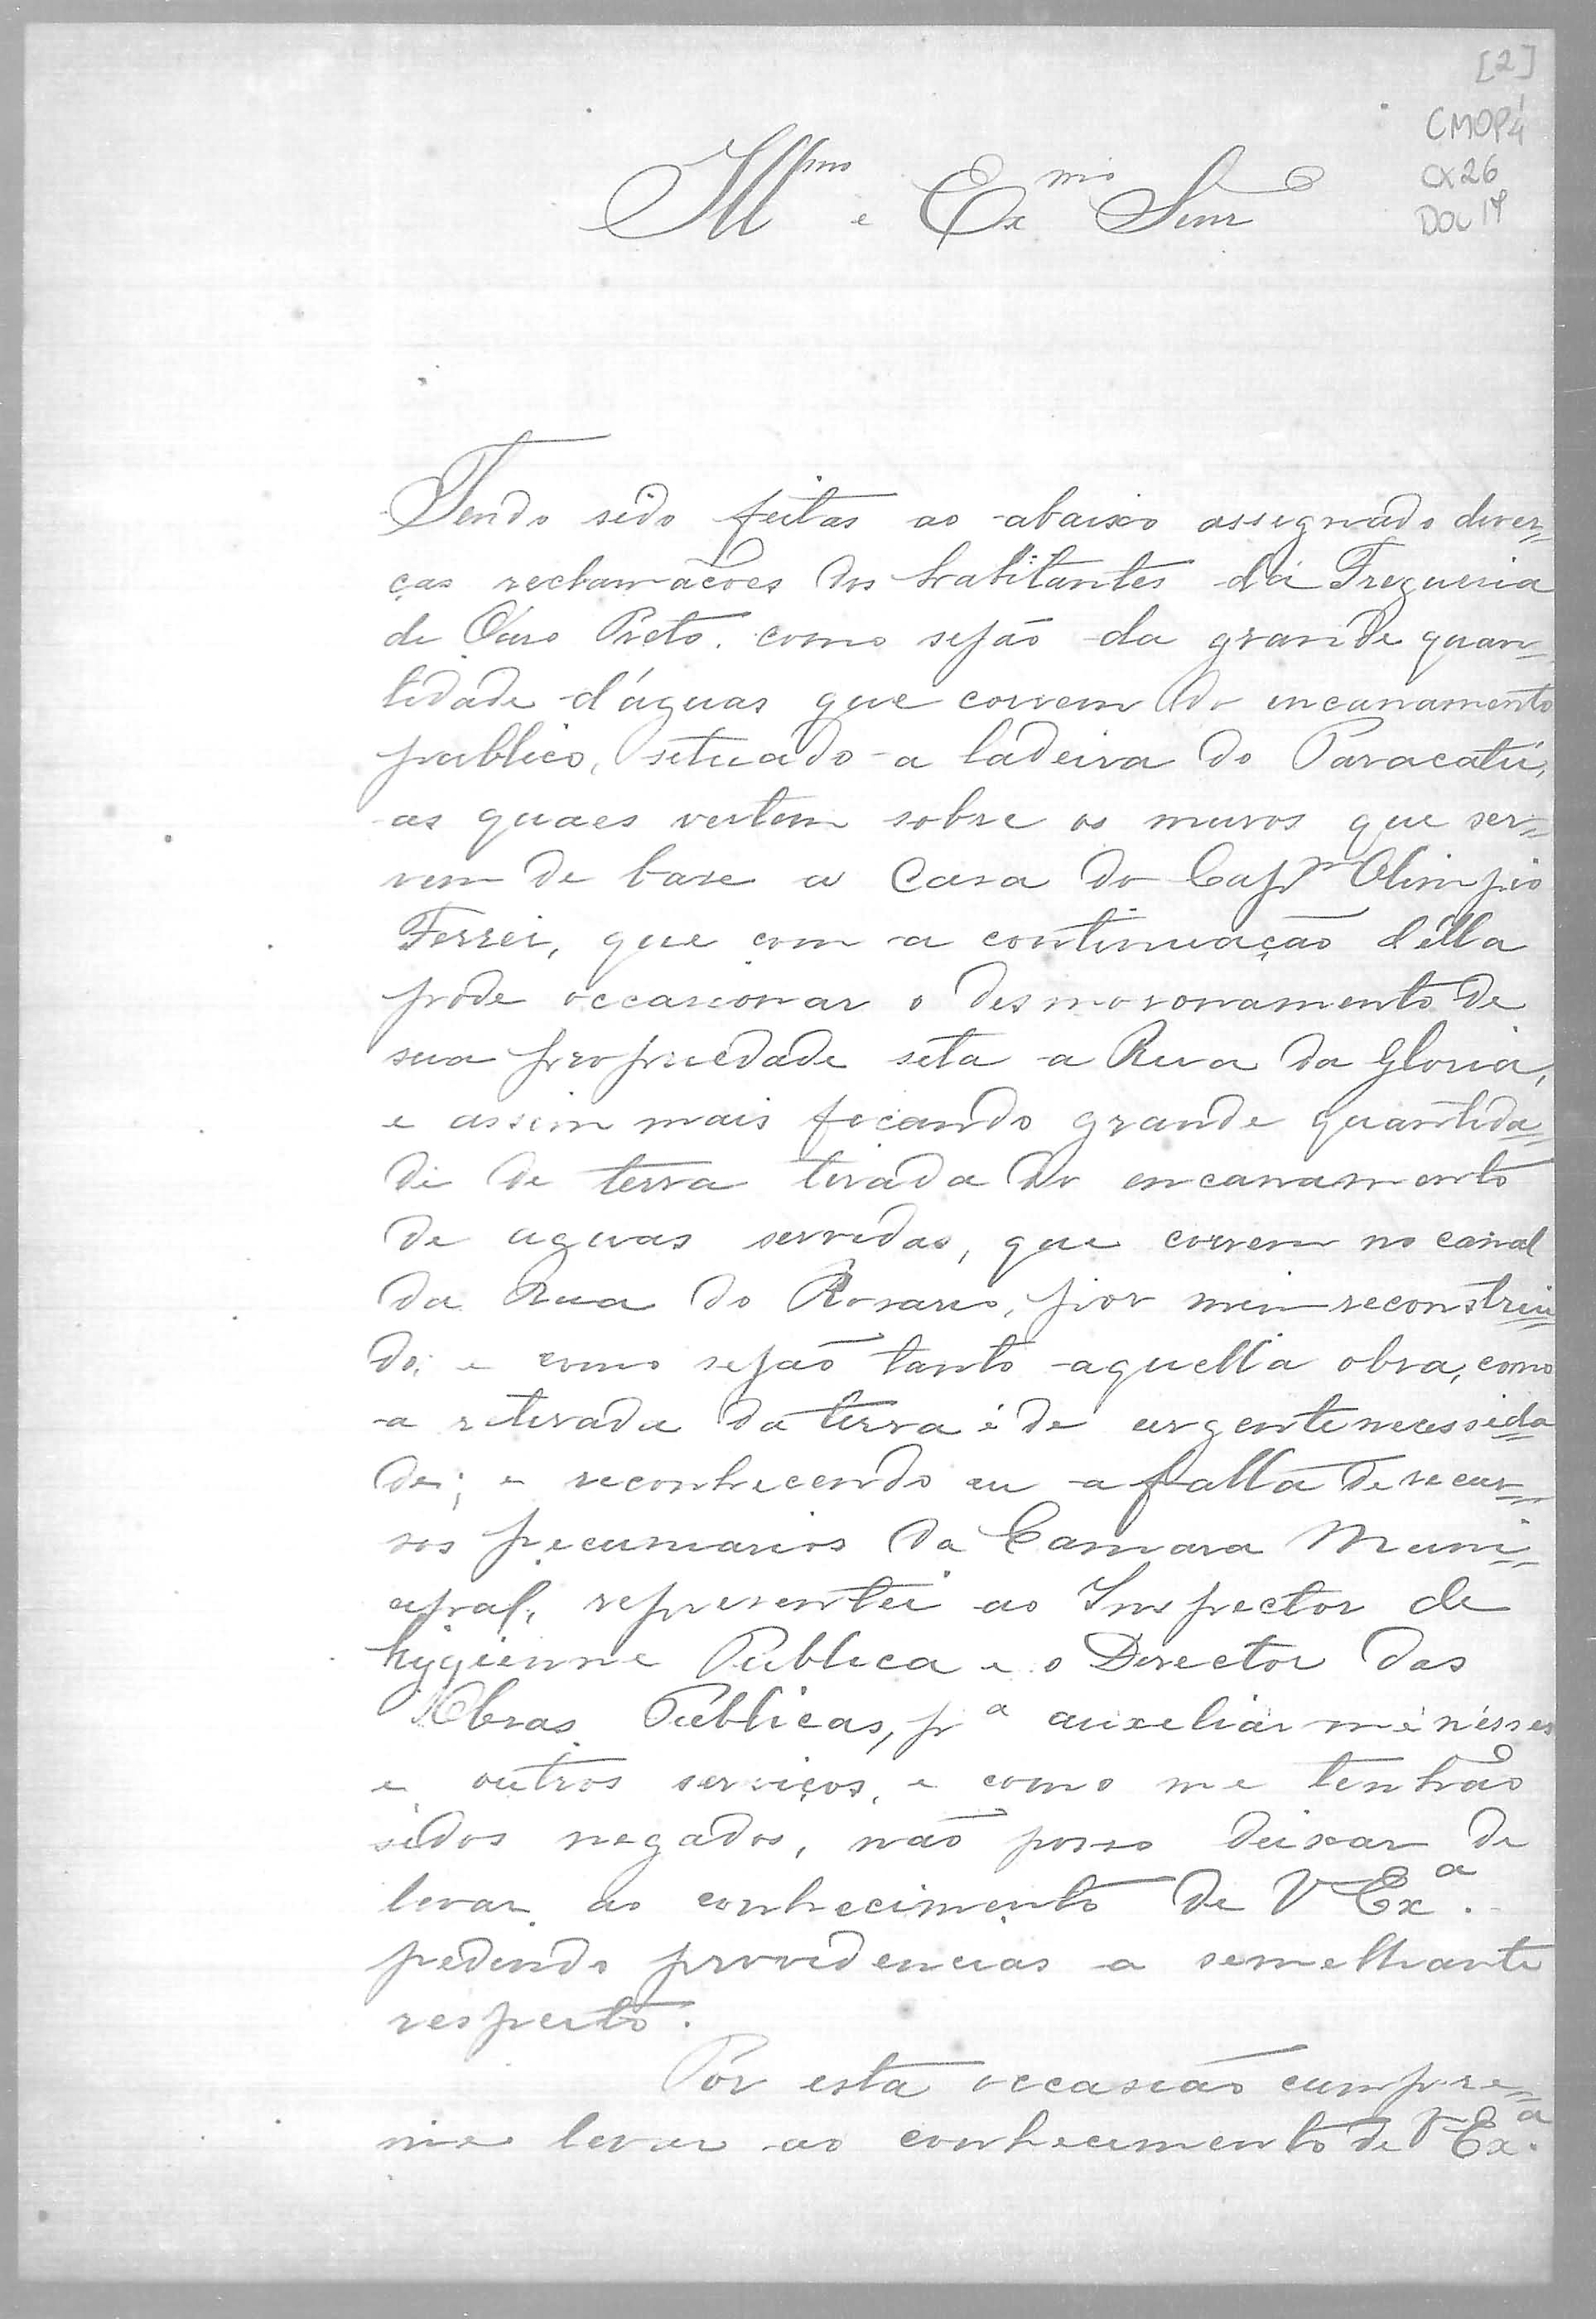 [2]
CMOP4
CX26
DOC 17
Ill^mo e Ex^mo Senr
Tendo sido feitas ao abaixo assignado diver=
ças reclamações dos habitantes da Freguesia
de Ouro Preto. como sejão da grande quan=
tidade d'águas que correm do encanamento
publico, situado a ladeira do Paracatú,
as quaes vertem sobre os muros que ser=
vem de base a Casa do Cap^m Olimpio
Ferrei, que com a continuação d'élla
póde occasionar o desmoronamento de
sua propriedade sita a Rua da Gloria,
e assim mais ficando grande quantida=
de de terra tirada do encanamento
de aguas servidas, que correm no canal
da Rua do Rosario, por mim reconstrui=
do; e como sejão tanto aquella obra, como
a retirada da terra é de urgente necessida=
de; e reconhecendo eu a falta de recur=
sos pecuniarios da Camara Muni=
cipal, representei ao Inspector de
hygienne Publica e o Director das
Obras Publicas, p^a auxiliar me nésses
e outros serviços, e como me tenhão
sidos negados, não posso deixar de
levar ao conhecimento de V Ex^a.
pedindo providencias a semelhante
respeito.
Pór esta occasião cumpre=
me levar ao conhecimento de V Ex^a.